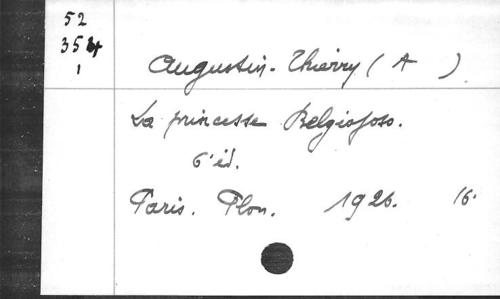 52
354
1
Augustin-Thierry (A )
La princesse Belgiojoso.
6ᵉ éd.
Paris. Plon. 1926. 16.